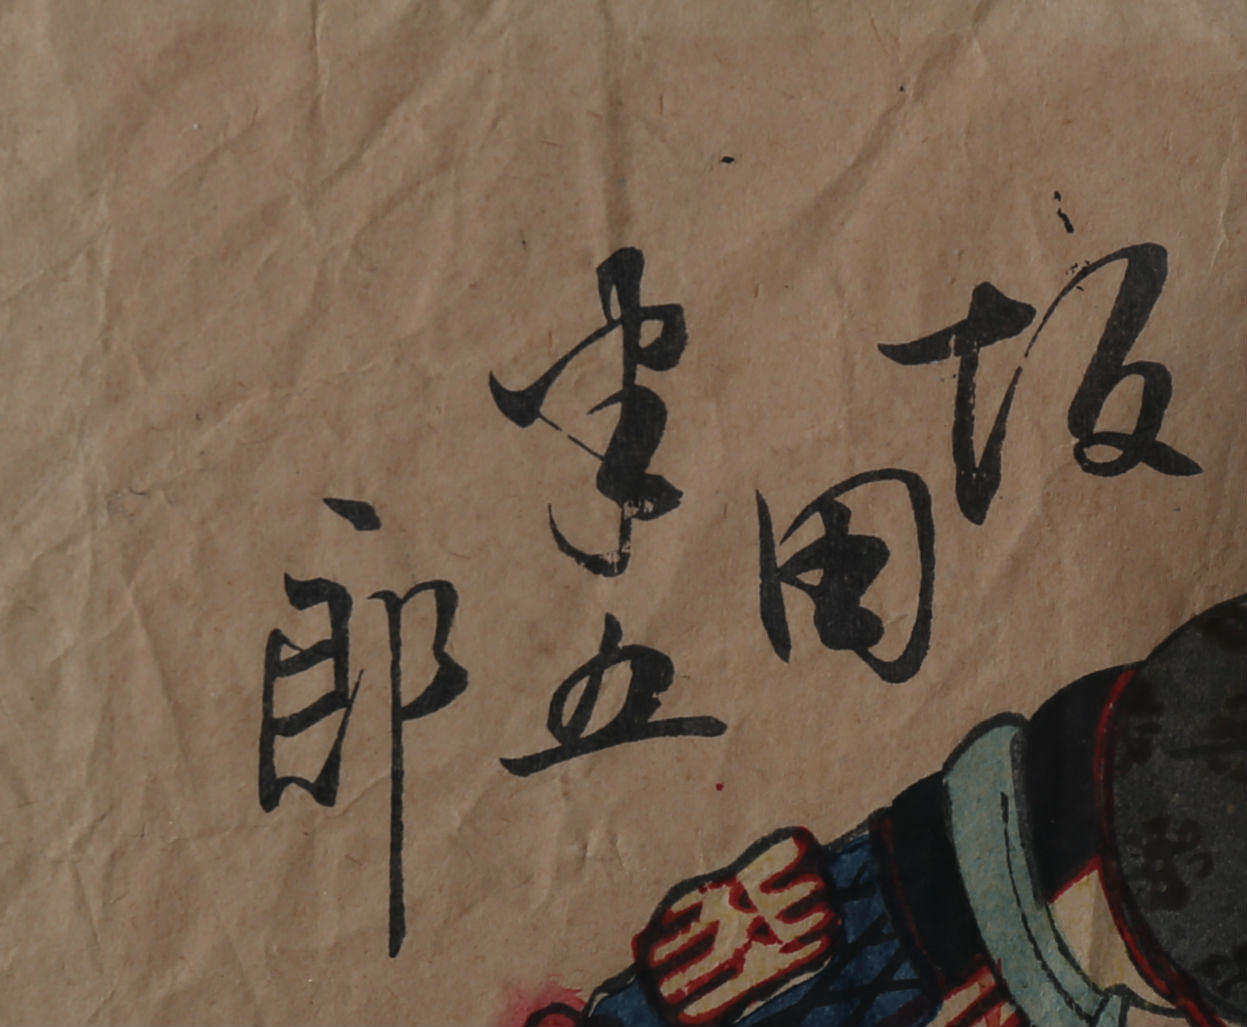 坂田
半五
郎